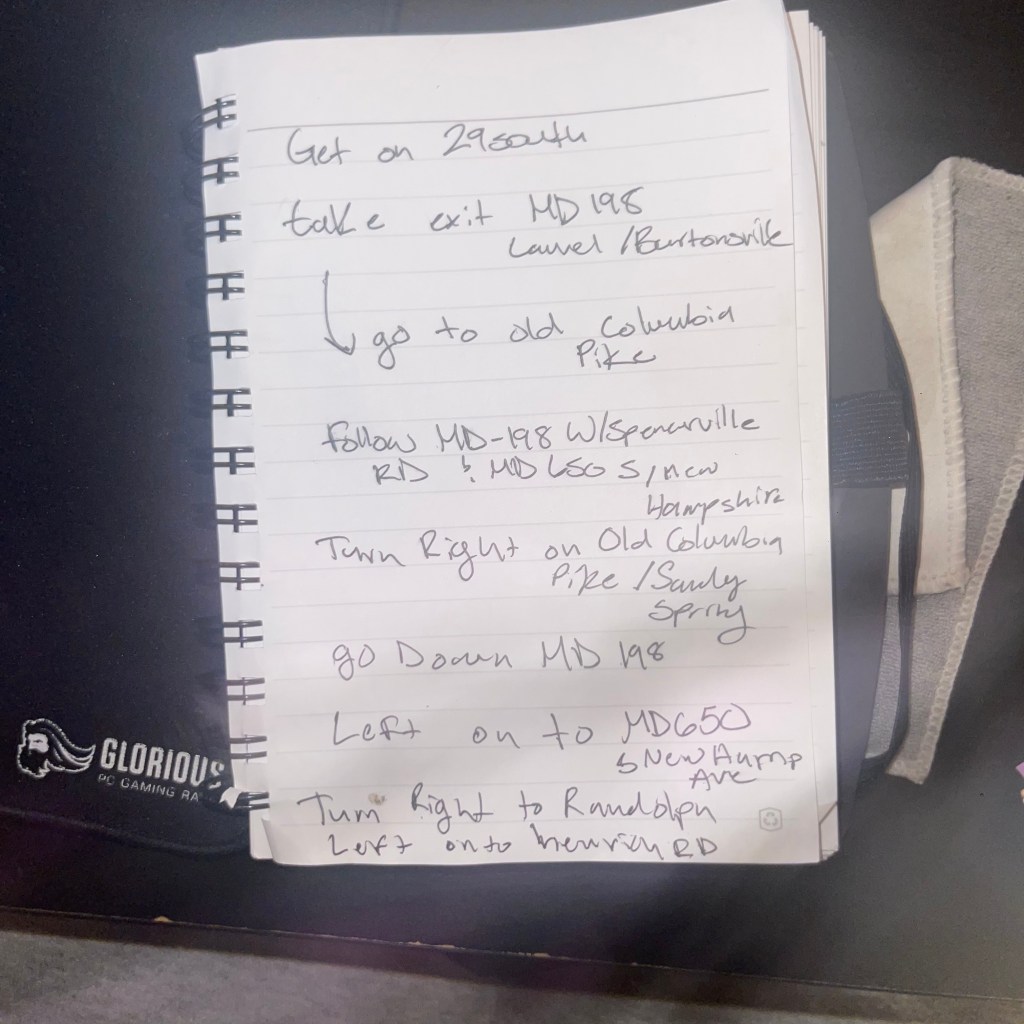 Get on 29 south
take exit MD 198
Laurel / Burtonsville
go to old Columbia
Pike
Follow MD-198 W/Spencerville
RD & MD 650 S/new
Hampshire
Turn Right on Old Columbia
Pike / Sandy
Spring
go Down MD 198
Left on to MD650
S New Hamp
Ave
Turn Right to Randolph
Left onto RD
GLORIOUS
PC GAMING RA